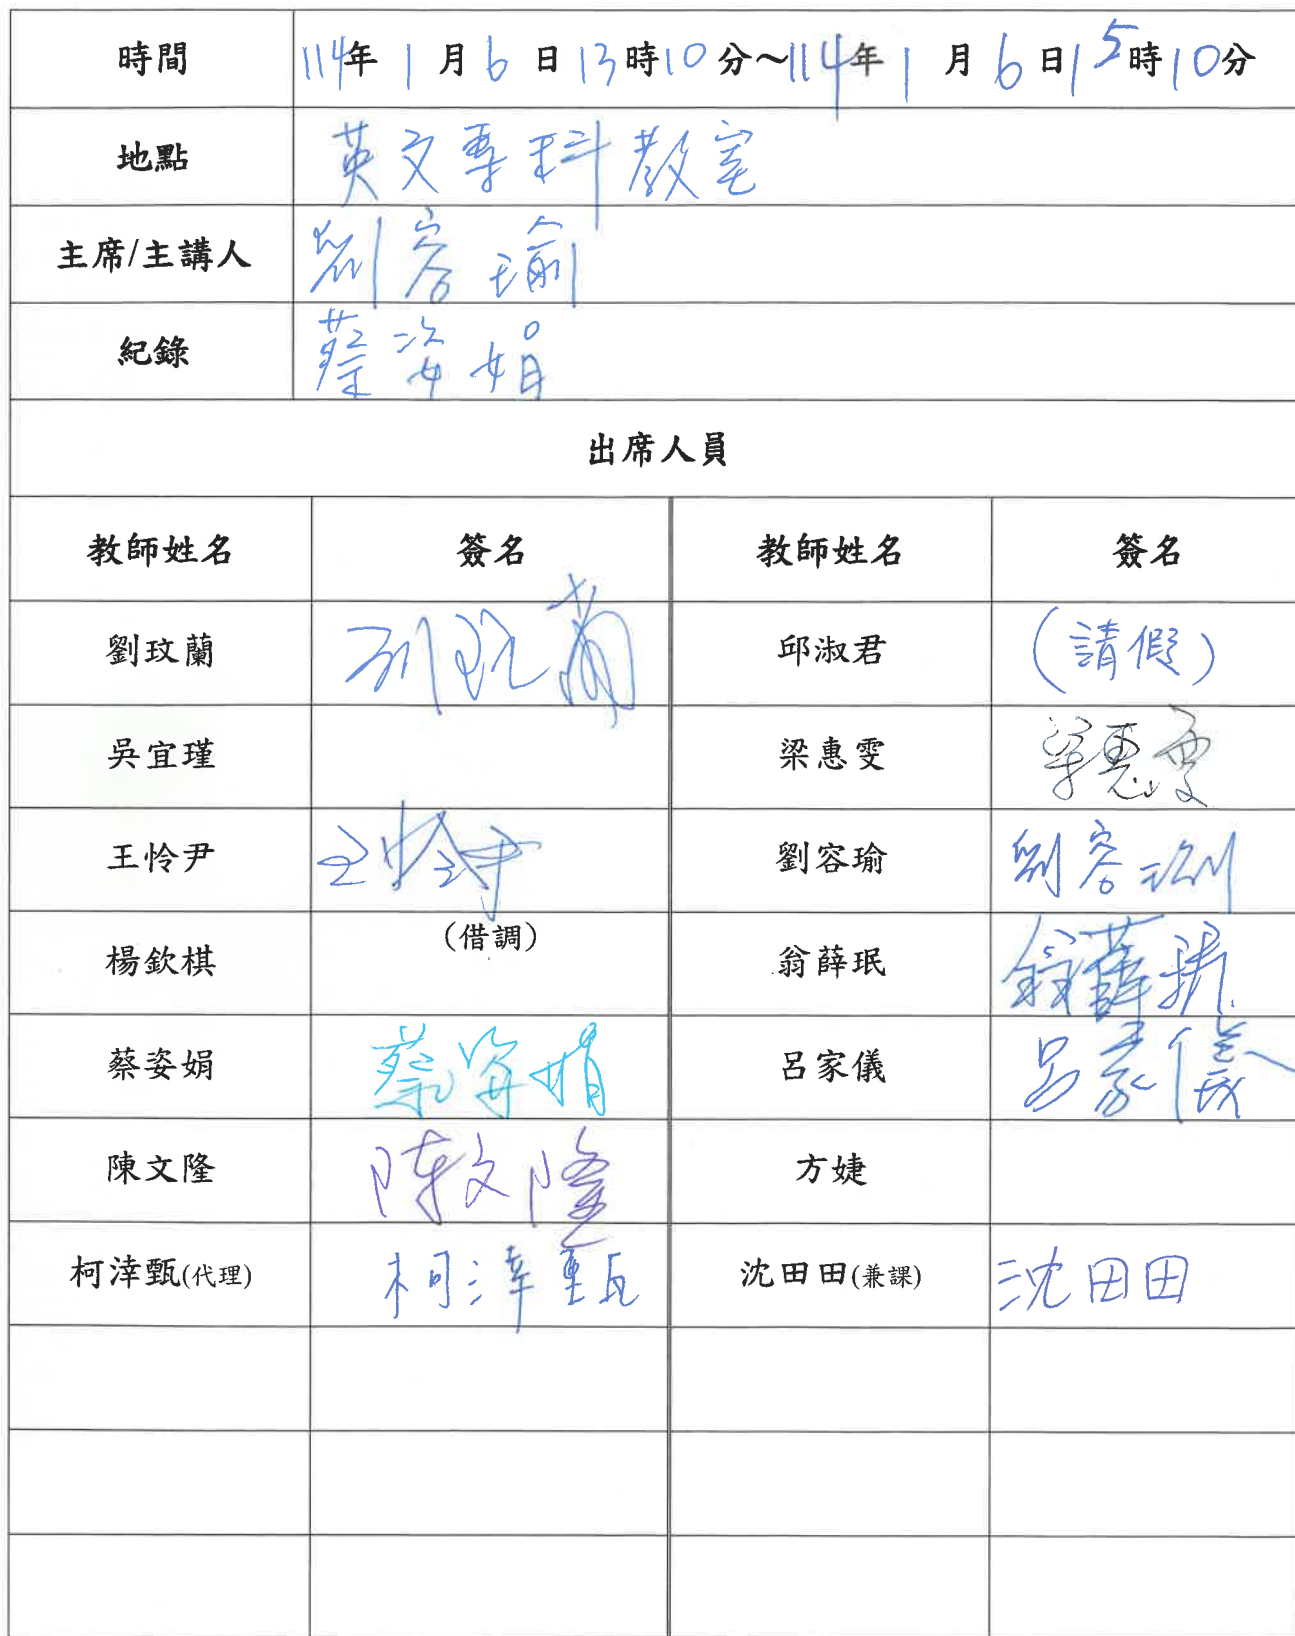 時間 114年 1 月 6 日 13時10分~114年 1 月 6 日15時10分
地點 英文專科教室
主席/主講人 劉容瑜
紀錄 蔡姿娟
出席人員
教師姓名 簽名 教師姓名 簽名
劉玟蘭 刘玟蘭 邱淑君 (請假)
吳宜瑾 梁惠雯 梁惠雯
王怜尹 王怜尹 劉容瑜 劉容瑜
楊欽棋 (借調) 翁薛珉
蔡姿娟 蔡姿娟 呂家儀 呂家儀
陳文隆 陳文隆 方婕
柯涬甄(代理) 柯涬甄 沈田田(兼課) 沈田田